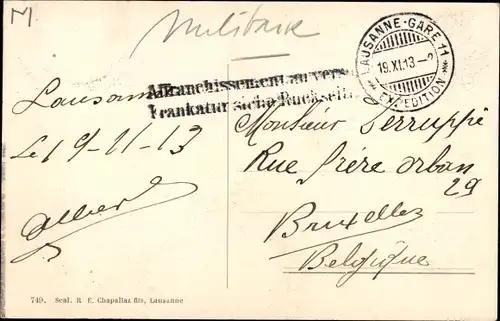 M
Militare
LAUSANNE-GARE 11
19.XI.13-2
EXPEDITION
Affranchissement au verso
Frankatur siehe Rückseite
Lausanne
Le 19-11-13
Albert
Monsieur Serruppi
Rue Frère Orban
29
Bruxelles
Belgique
749. Seal. R. E. Chapallaz fils, Lausanne